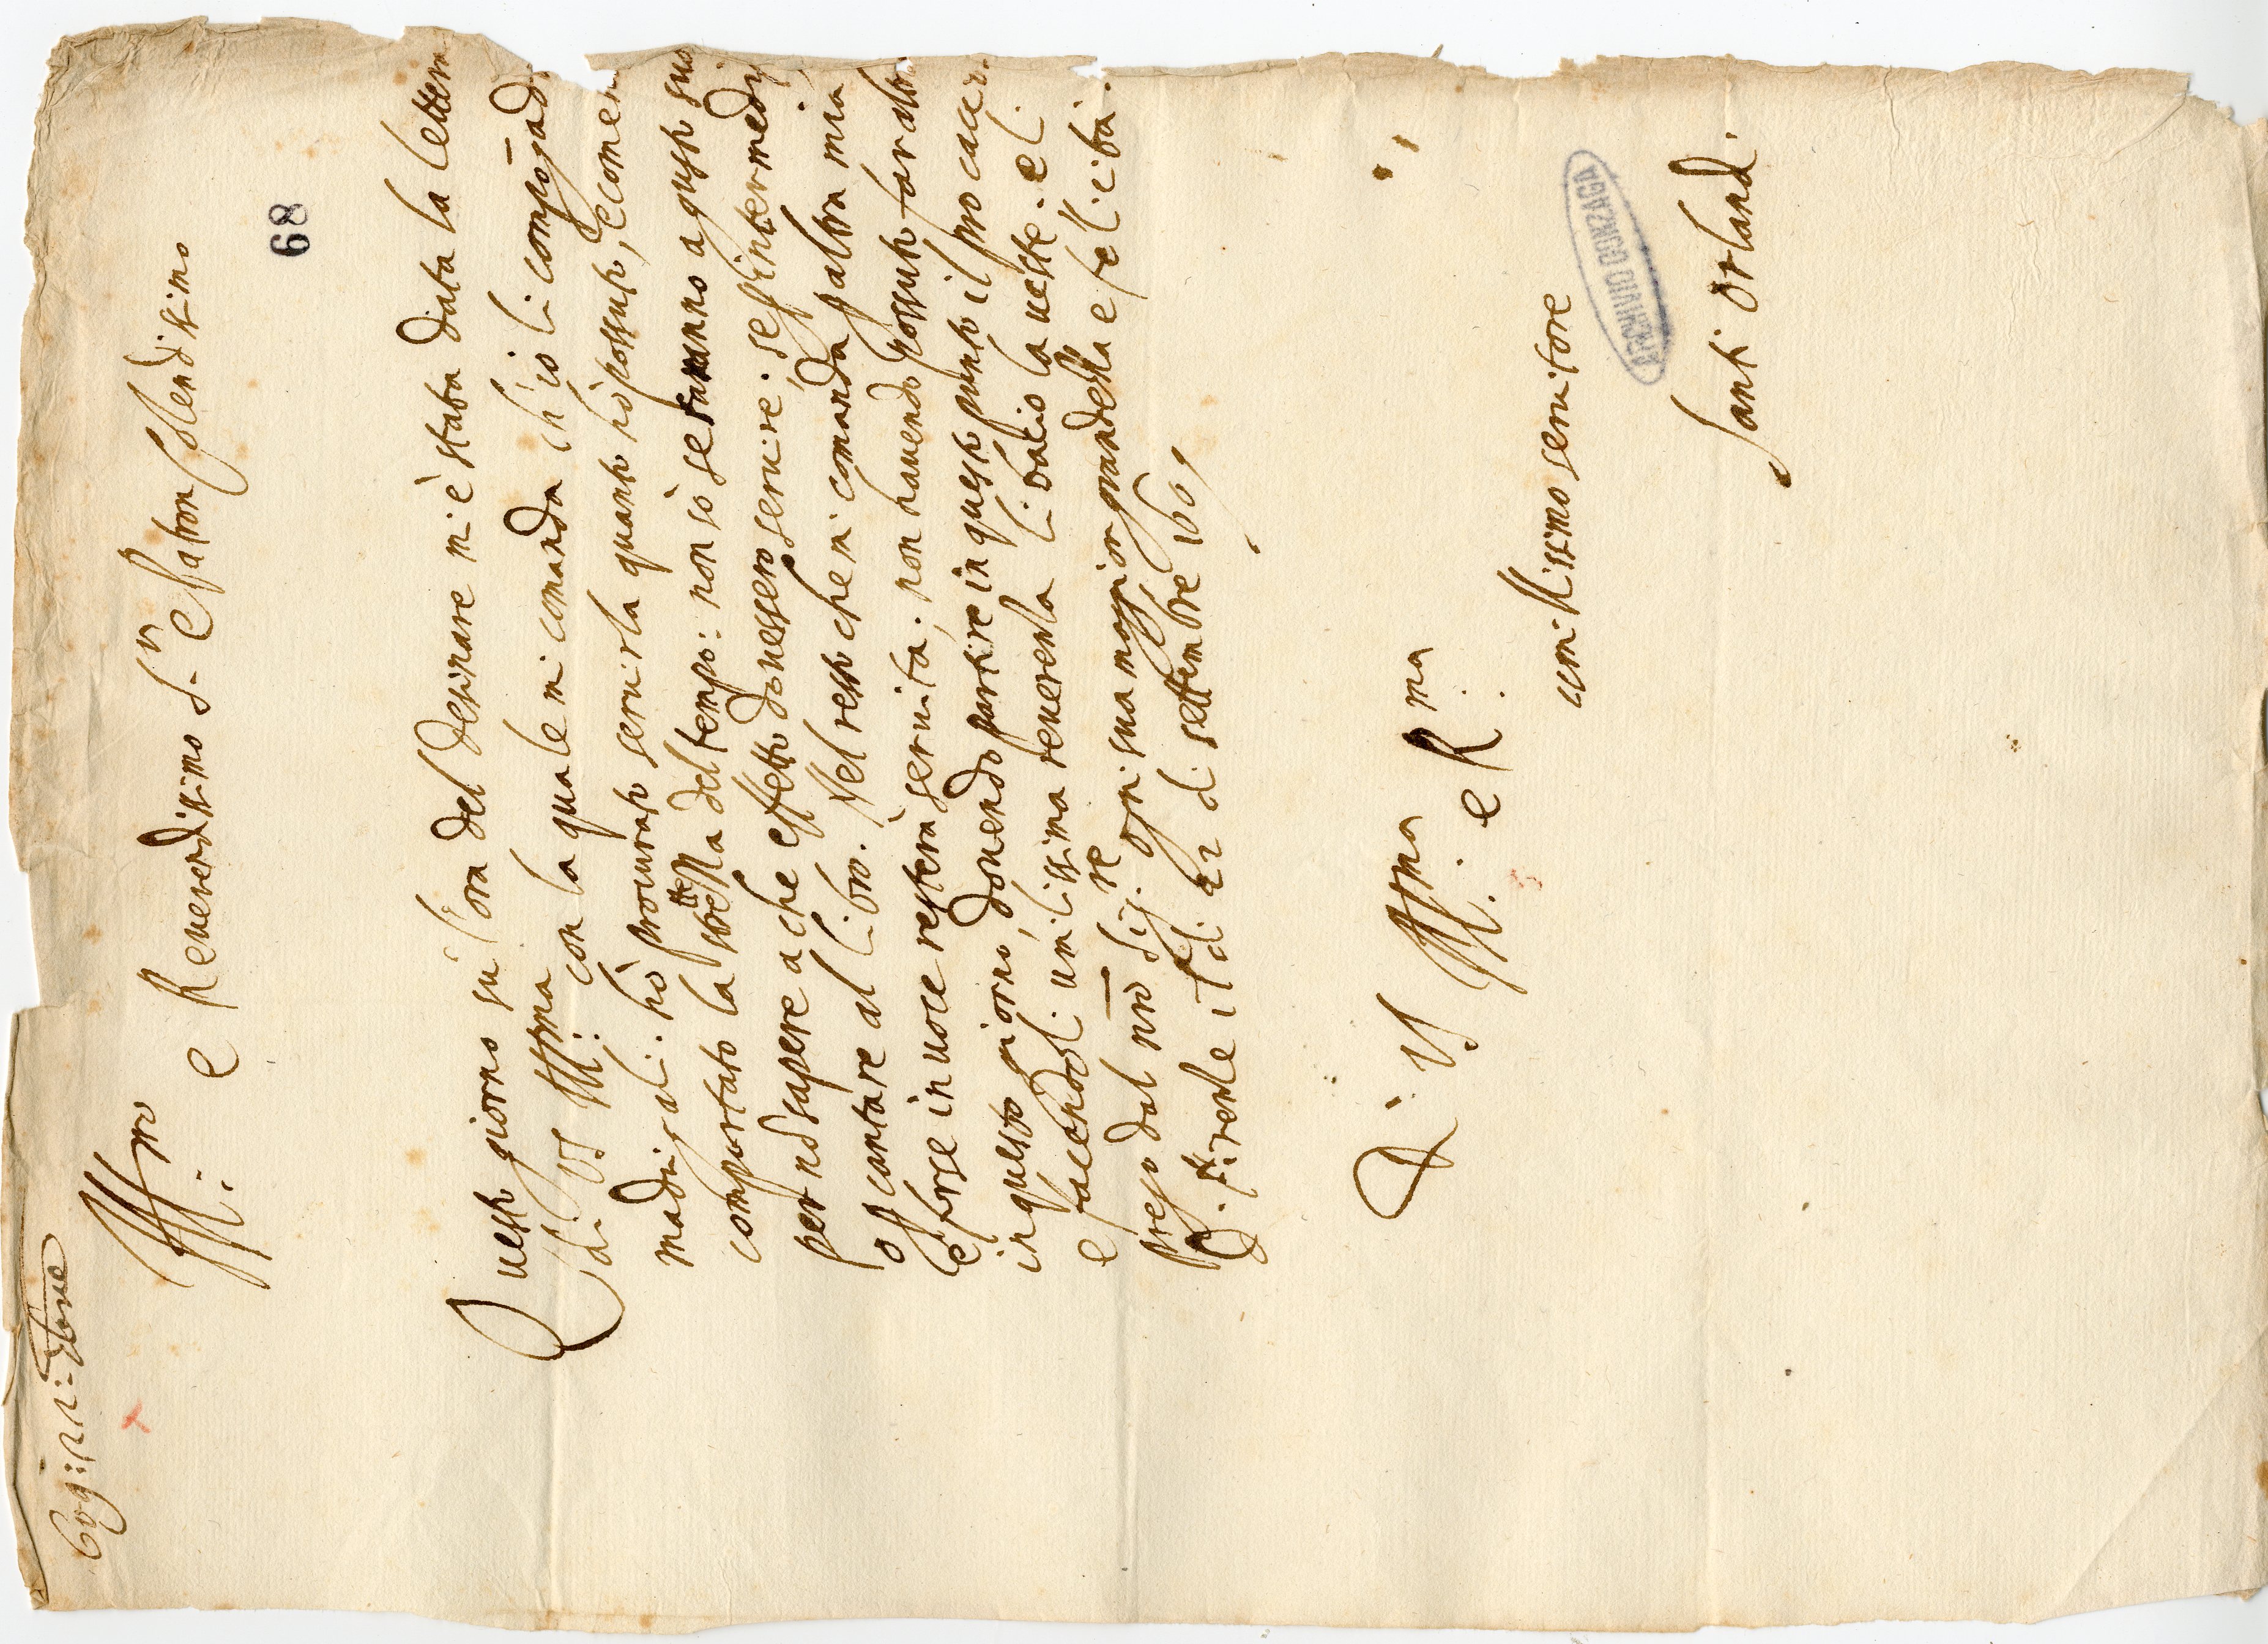 609: 22: 7bre
Ill:mo e Reverendissimo S.r e Patron Colendissimo
68
Questo giorno sù l'ora del desinare mi è stata data la lettera
di VS Ill:ma con la quale mi comanda ch'io li compōga d
madrigali. hò procurato servirla quanto hò possuto, e come h
comportato la strettezza del tempo: non sò se saranno a gusto suo
per nō sapere a che effetto dovessero servire. se p intermedij
o p cantare al libro. Nel resto che mi comanda p altra mia
e forse in voce resterà servita; non havendo possuto far altr
in questo giorno, dovendo partire in questo punto il procacci
e facendoli umilissima reverenza li bacio la veste. e li
prego dal nr̄o Sig.re ogni sua maggior grandezza e felicità.
Di Firenze il dì 22 di settembre 1609
Di VS Ill:ma e R:ma
umilissimo servitore
ARCHIVIO GONZAGA
Santi Orlandi